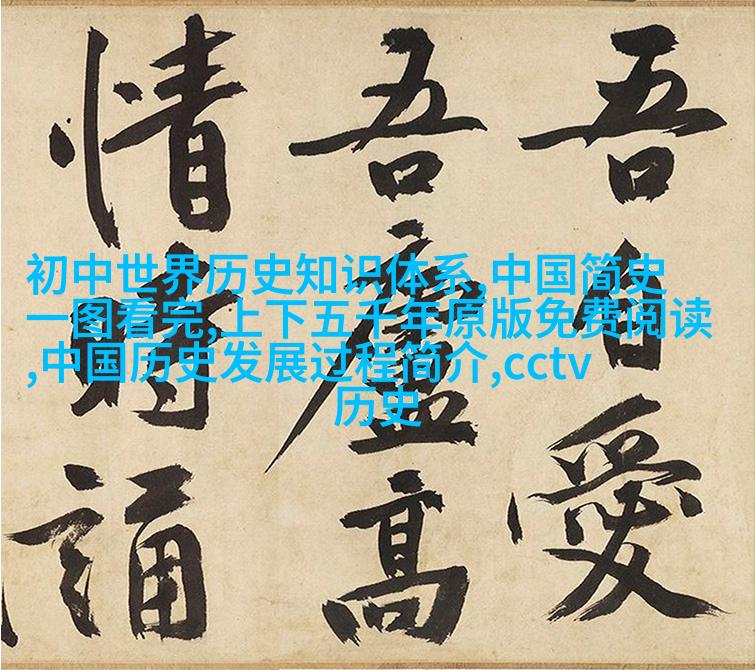 初中世界历史知识体系,中国简史
一图看完,上下五千年原版免费阅读
,中国历史发展过程简介,cctv
历史
吾自愛
吾廬高
情時誦